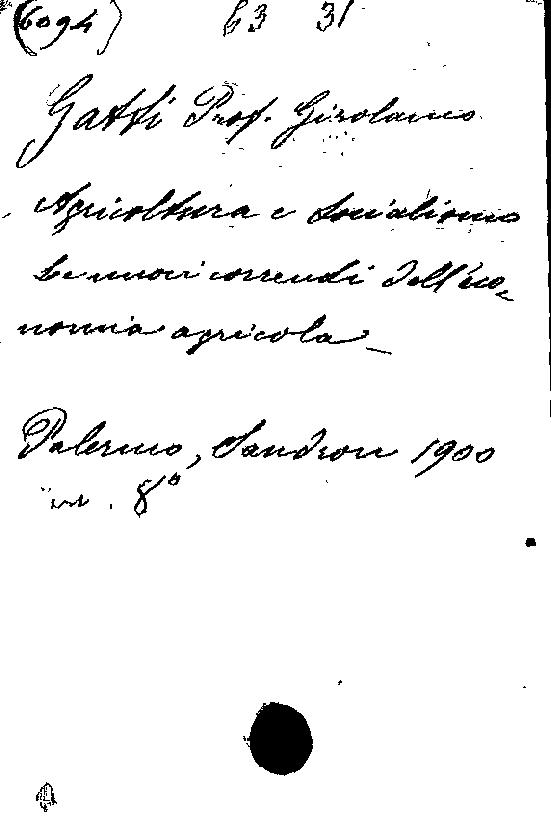 (6094) 63 31
Gatti Prof. Girolamo
Agricoltura e Socialismo
Le nuove correnti dell'eco-
nomia agricola_
Palermo, Sandron 1900
in. 8°